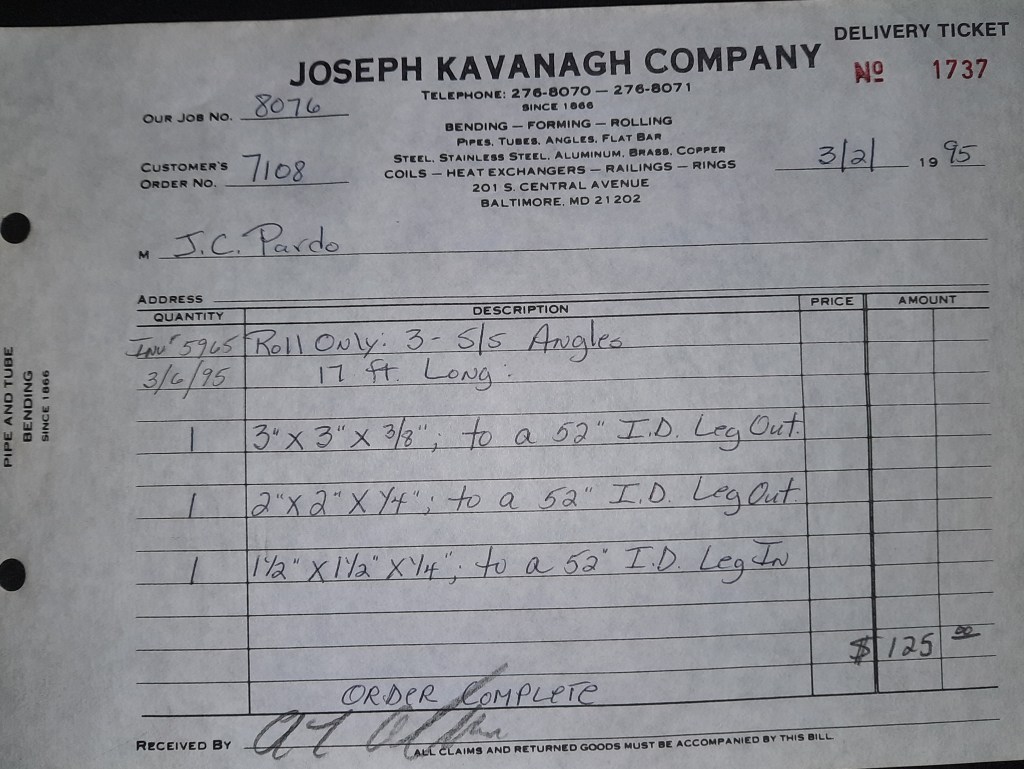 DELIVERY TICKET
JOSEPH KAVANAGH COMPANY
Nº 1737
TELEPHONE: 276-8070 — 276-8071
SINCE 1866
OUR JOB NO. 8076
BENDING — FORMING — ROLLING
PIPES, TUBES, ANGLES, FLAT BAR
STEEL, STAINLESS STEEL, ALUMINUM, BRASS, COPPER
COILS — HEAT EXCHANGERS — RAILINGS — RINGS
201 S. CENTRAL AVENUE
BALTIMORE, MD 21202
CUSTOMER'S
ORDER NO. 7108
3/2/ 19 95
M J.C. Pardo
ADDRESS
QUANTITY DESCRIPTION PRICE AMOUNT
Inv# 5965 Roll Only: 3- S/S Angles
3/6/95 17 ft. Long:
1 3" X 3" X 3/8"; to a 52" I.D. Leg Out.
1 2" X 2" X 1/4"; to a 52" I.D. Leg Out
1 1 1/2" X 1 1/2" X 1/4"; to a 52" I.D. Leg In
$ 125 00
ORDER COMPLETE
RECEIVED BY
ALL CLAIMS AND RETURNED GOODS MUST BE ACCOMPANIED BY THIS BILL
PIPE AND TUBE
BENDING
SINCE 1866